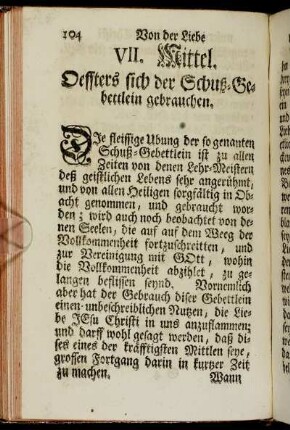 104 Von der Liebe
VII. Mittel.
Oeffters sich der Schuß-Ge-
bettlein gebrauchen.
DJe fleissige Ubung der so genanten
Schuß-Gebettlein ist zu allen
Zeiten von denen Lehr-Meistern
deß geistlichen Lebens sehr angerühmt;
und von allen Heiligen sorgfältig in Ob-
acht genommen, und gebraucht wor-
den; wird auch noch beobachtet von de-
nen Seelen, die auf auf dem Weeg der
Vollkommenheit fortzuschreitten, und
zur Vereinigung mit GOtt, wohin
die Vollkommenheit abzihlet, zu ge-
langen beflissen seynd. Vornemlich
aber hat der Gebrauch diser Gebettlein
einen unbeschreiblichen Nutzen, die Lie-
be JEsu Christi in uns anzuflammen;
und darff wohl gesagt werden, daß di-
ses eines der kräfftigsten Mittlen seye,
grossen Fortgang darin in kurtzer Zeit
zu machen. Wann